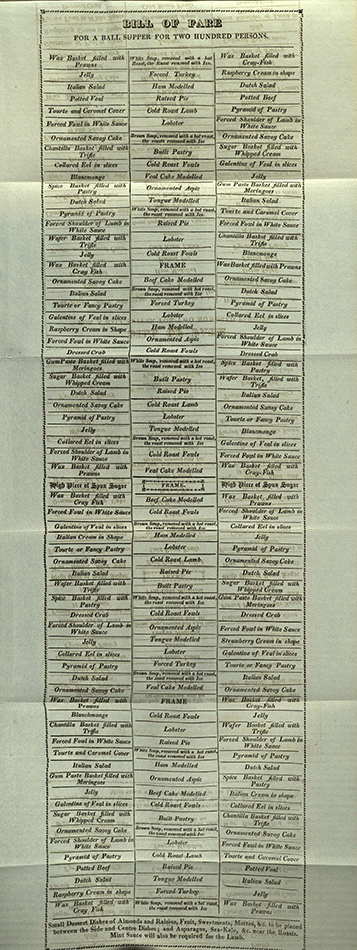 BILL OF FARE
FOR A BALL SUPPER FOR TWO HUNDRED PERSONS.
Wax Basket filled with Prawns
Jelly
Italian Salad
Potted Veal
Tourte and Caramel Cover
Forced Fowl in White Sauce
Ornamented Savoy Cake
Chantilla Basket filled with Trifle
Collared Eel in slices
Blancmonge
Spice Basket filled with Pastry
Dutch Salad
Pyramid of Pastry
Forced Shoulder of Lamb in White Sauce
Wafer Basket filled with Trifle
Jelly
Wax Basket filled with Cray Fish
Ornamented Savoy Cake
Italian Salad
Tourte or Fancy Pastry
Galentine of Veal in slices
Raspberry Cream in Shape
Forced Fowl in White Sauce
Dressed Crab
Gum Paste Basket filled with Meringues
Sugar Basket filled with Whipped Cream
Dutch Salad
Ornamented Savoy Cake
Pyramid of Pastry
Jelly
Collared Eel in slices
Forced Shoulder of Lamb in White Sauce
Wax Basket filled with Prawns
High Piece of Spun Sugar
Wax Basket filled with Cray Fish
Forced Fowl in White Sauce
Galentine of Veal in slices
Italian Cream in Shape
Tourte or Fancy Pastry
Ornamented Savoy Cake
Italian Salad
Wafer Basket filled with Trifle
Spice Basket filled with Pastry
Dressed Crab
Forced Shoulder of Lamb in White Sauce
Jelly
Collared Eel in slices
Pyramid of Pastry
Dutch Salad
Ornamented Savoy Cake
Wax Basket filled with Prawns
Blancmonge
Chantilla Basket filled with Trifle
Forced Fowl in White Sauce
Tourte and Caramel Cover
Italian Salad
Gum Paste Basket filled with Meringues
Jelly
Galentine of Veal in slices
Sugar Basket filled with Whipped Cream
Ornamented Savoy Cake
Forced Shoulder of Lamb in White Sauce
Pyramid of Pastry
Potted Beef
Dutch Salad
Raspberry Cream in shape
Wax Basket filled with Cray Fish
White Soup, removed with a hot Roast, the Roast removed with Ice.
Forced Turkey
Ham Modelled
Raised Pie
Cold Roast Lamb
Lobster
Brown Soup, removed with a hot roast, the roast removed with Ice
Built Pastry
Cold Roast Fowls
Veal Cake Modelled
Ornamented Aspic
Tongue Modelled
White Soup, removed with a hot roast, the roast removed with Ice
Raised Pie
Lobster
Cold Roast Fowls
FRAME
Beef Cake Modelled
Brown Soup, removed with a hot roast, the roast removed with Ice
Forced Turkey
Lobster
Ham Modelled
Ornamented Aspic
Cold Roast Fowls
White Soup, removed with a hot roast, the roast removed with Ice
Built Pastry
Raised Pie
Cold Roast Lamb
Lobster
Tongue Modelled
Brown Soup, removed with a hot roast, the roast removed with Ice
Cold Roast Fowls
Veal Cake Modelled
FRAME
Beef Cake Modelled
Cold Roast Fowls
Brown Soup, removed with a hot roast, the roast removed with Ice
Ham Modelled
Lobster
Cold Roast Lamb
Raised Pie
Built Pastry
White Soup, removed with a hot roast, the roast removed with Ice
Cold Roast Fowls
Ornamented Aspic
Tongue Modelled
Lobster
Forced Turkey
Brown Soup, removed with a hot roast, the roast removed with Ice
Veal Cake Modelled
FRAME
Cold Roast Fowls
Lobster
Raised Pie
White Soup, removed with a hot roast, the roast removed with Ice
Ham Modelled
Ornamented Aspic
Beef Cake Modelled
Cold Roast Fowls
Built Pastry
Brown Soup, removed with a hot roast, the roast removed with Ice
Lobster
Cold Roast Lamb
Raised Pie
Tongue Modelled
Forced Turkey
White Soup, removed with a hot roast, the roast removed with Ice
Wax Basket filled with Cray-Fish
Raspberry Cream in shape
Dutch Salad
Potted Beef
Pyramid of Pastry
Forced Shoulder of Lamb in White Sauce
Ornamented Savoy Cake
Sugar Basket filled with Whipped Cream
Galentine of Veal in slices
Jelly
Gum Paste Basket filled with Meringues
Italian Salad
Tourte and Caramel Cover
Forced Fowl in White Sauce
Chantilla Basket filled with Trifle
Blancmonge
Wax Basket filled with Prawns
Ornamented Savoy Cake
Dutch Salad
Pyramid of Pastry
Collared Eel in slices
Jelly
Forced Shoulder of Lamb in White Sauce
Dressed Crab
Spice Basket filled with Pastry
Wafer Basket, filled with Trifle
Italian Salad
Ornamented Savoy Cake
Tourte or Fancy Pastry
Blancmonge
Galentine of Veal in slices
Forced Fowl in White Sauce
Wax Basket filled with Cray-Fish
High Piece of Spun Sugar
Wax Basket filled with Prawns
Forced Shoulder of Lamb in White Sauce
Collared Eel in slices
Jelly
Pyramid of Pastry
Ornamented Savoy Cake
Dutch Salad
Sugar Basket filled with Whipped Cream
Gum Paste Basket filled with Meringues
Dressed Crab
Forced Fowl in White Sauce
Strawberry Cream in shape
Galentine of Veal in slices
Tourte or Fancy Pastry
Italian Salad
Ornamented Savoy Cake
Wax Basket filled with Cray-Fish
Jelly
Wafer Basket filled with Trifle
Forced Shoulder of Lamb in White Sauce
Pyramid of Pastry
Dutch Salad
Spice Basket filled with Pastry
Italian Cream in shape
Collared Eel in slices
Chantilla Basket filled with Trifle
Ornamented Savoy Cake
Forced Fowl in White Sauce
Tourte and Caramel Cover
Potted Veal
Italian Salad
Jelly
Wax Basket filled with Prawns
Small Dessert Dishes of Almonds and Raisins, Fruit, Sweetmeats, Mottos, &c. to be placed
between the Side and Centre Dishes; and Asparagus, Sea-Kale, &c. near the Roasts.
Mint Sauce will also be required for the Lamb.